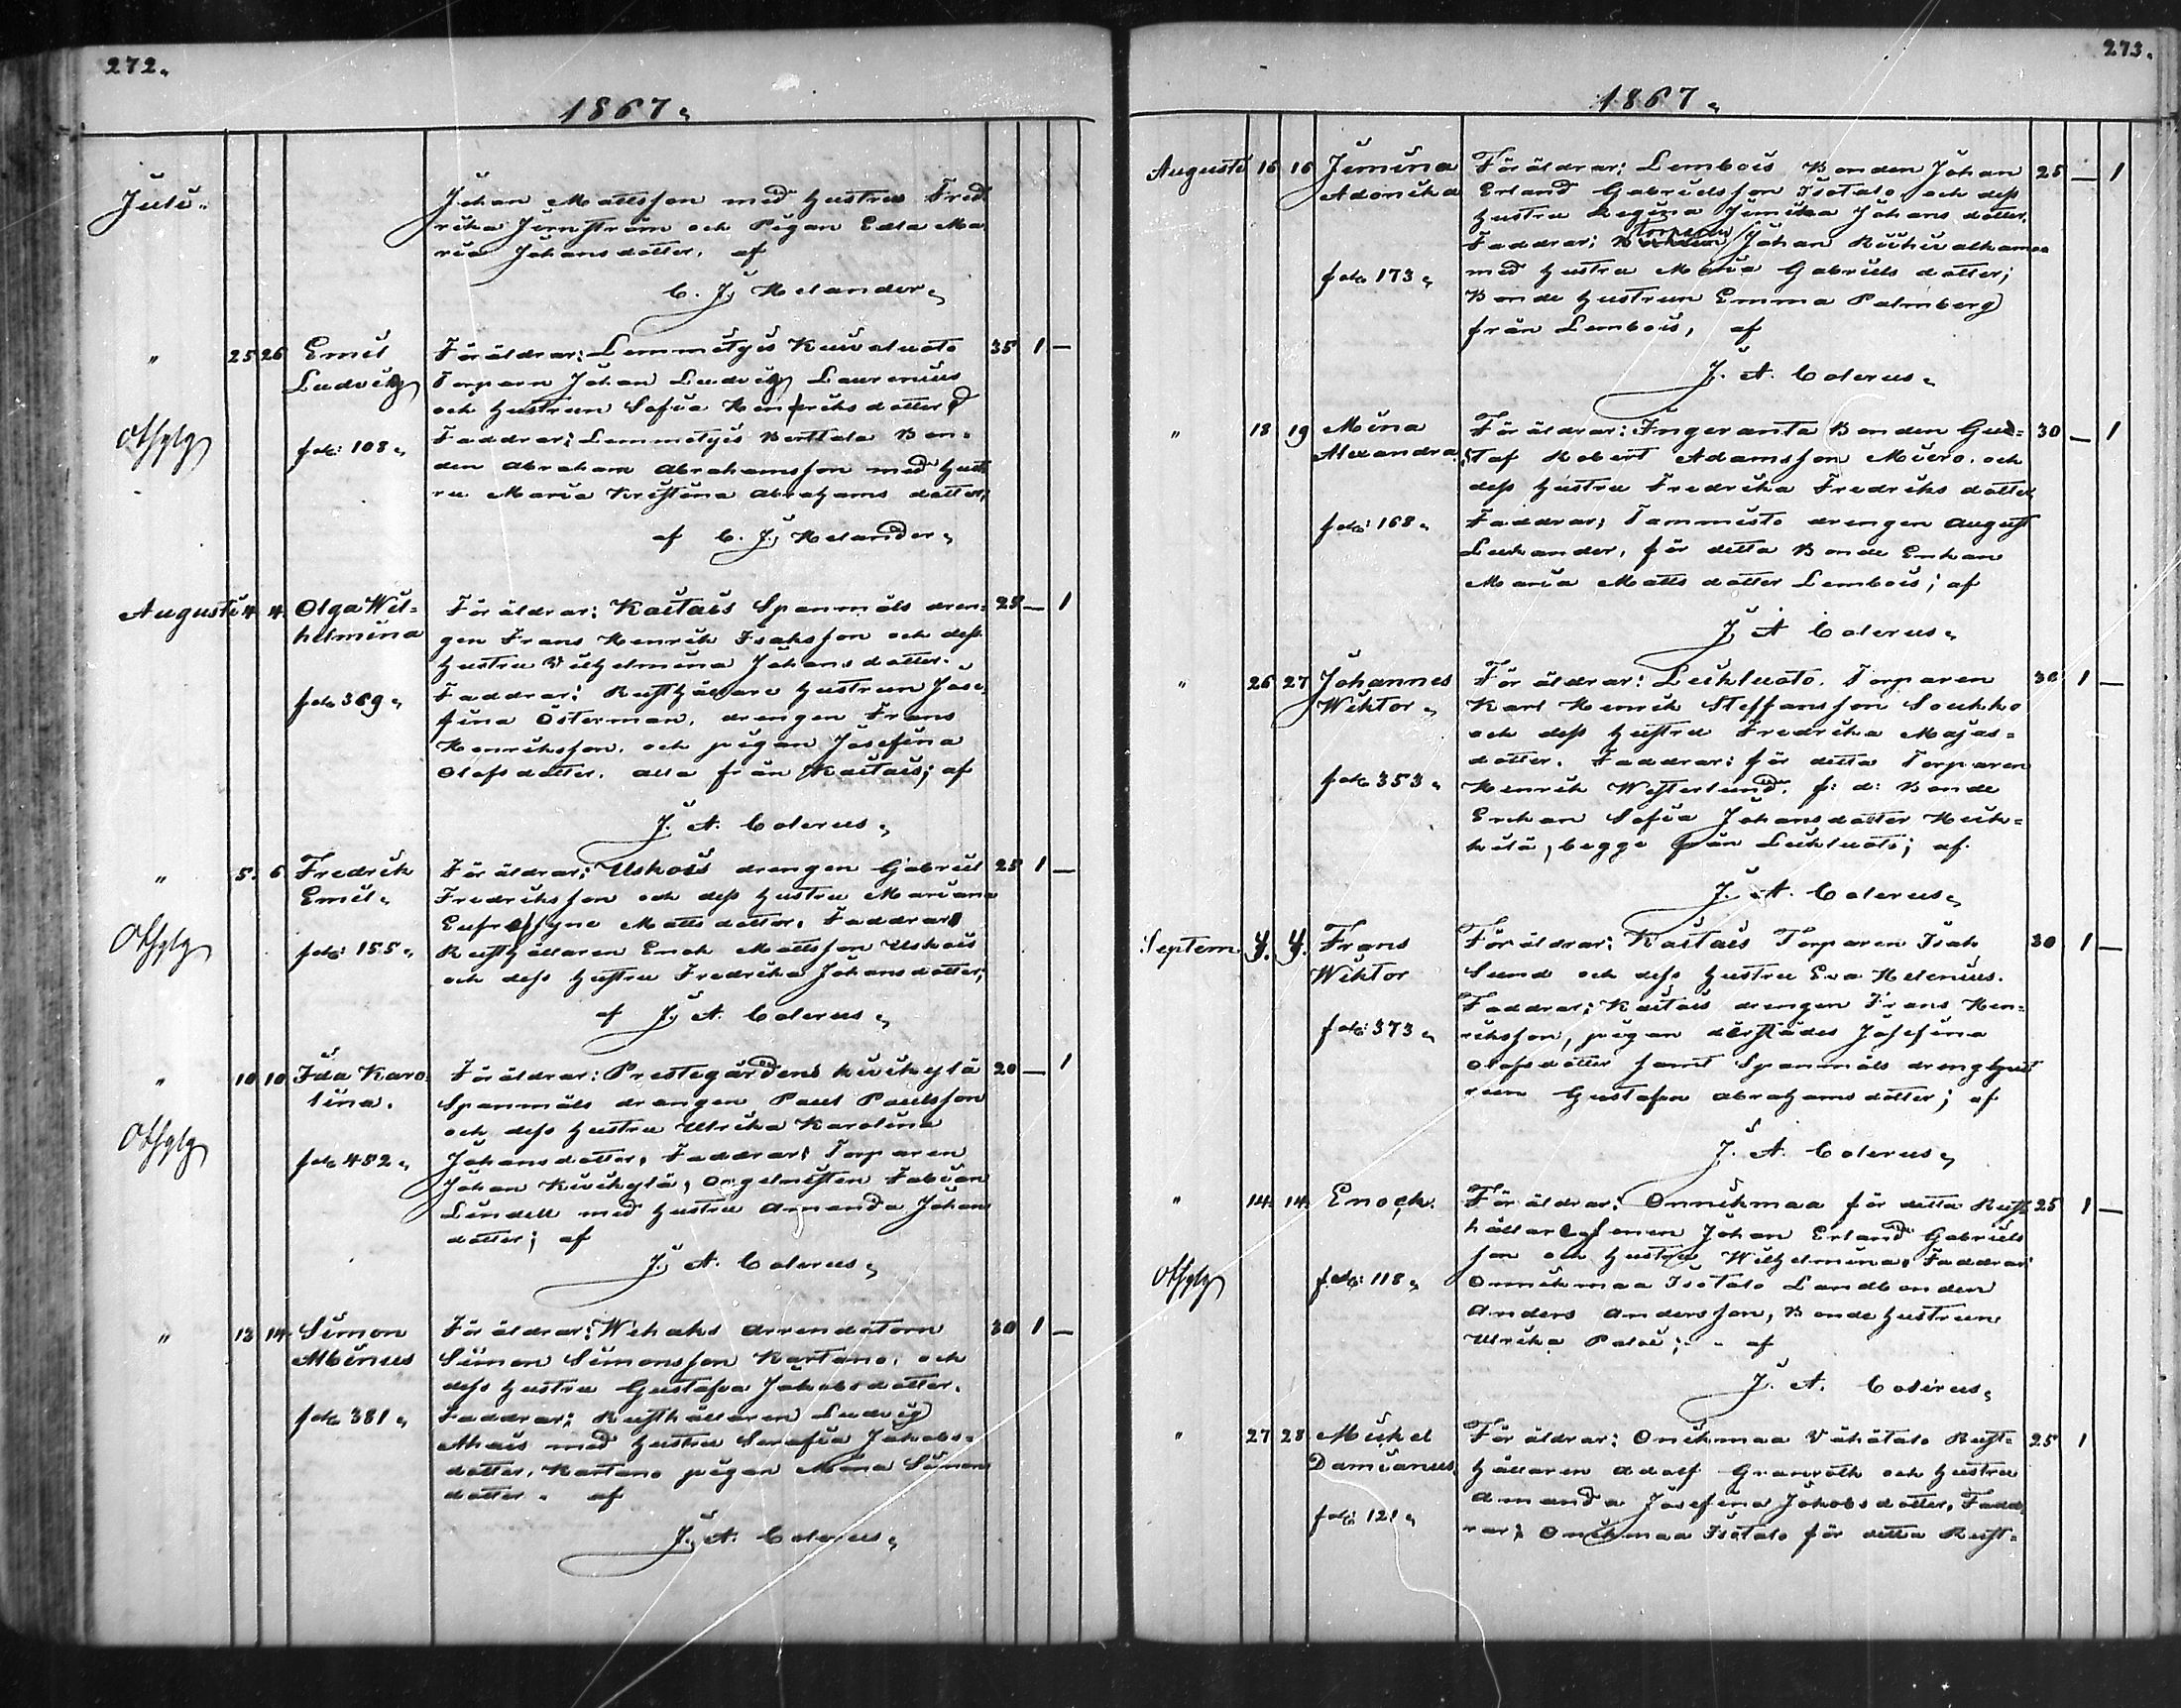 272.
1867.
Juli.
Johan Mattsson med hustru Fred-
rika Jernström och Pigan Edla Ma
ria Johansdotter. af
C. J. Helander.
" 25 26 Emil Föräldrar: Lemmetyis Kuivaluoto 35 1 —
Ludvig Torparn Johan Ludvig Laurenius
och hustrun Sofia Henriksdotter
fol: 108. Faddrar: Lemmetyis Berttala Bon-
den Abraham Abrahamsson med hust
ru Maria Kristina Abrahams dotter;
af C. J. Helander.
Augusti 4. 4. Olga Wil- Föräldrar: Kaitais Spanmåls dren- 28 — 1
helmina gen Frans Henrik Isaksson och dess
hustru Vilhelmina Johansdotter.
fol 369. Faddrar: Rusthållare hustrun Jose-
fina Österman, drengen Frans
Henriksson, och pigan Josefina
Olofsdotter. alla från Kaitais; af
J. A. Colerus.
" 5. 6 Fredrik Föräldrar: Uskois drengen Gabriel 25 1 —
Emil. Fredriksson och dess hustru Mariana
Eufrosyne Matts dotter. Faddrar
fol: 155. Rusthållaren Enok Mattsson Uskois
och dess hustru Fredrika Johansdotter;
af J. A. Colerus.
" 10 10 Ida Karo- Föräldrar: Prestegårdens Kivikylä 20 — 1
lina. Spanmåls drengen Paul Paulsson
och dess hustru Ulrika Karolina
fol 482. Johansdotter. Faddrar: Torparen
Johan Kivikylä, Orgelnisten Fabian
Lindell med hustru Amanda Johans
dotter; af
J. A. Colerus.
" 13 14. Simon Föräldrar: Wihaks Arrendatorn 30 1 —
Albinus Simon Simonsson Kartano, och
dess hustru Gustafva Jakobsdotter.
fol 381. Faddrar: Rusthållaren Ludvig
Ahais med hustru Serafia Jakobs-
dotter. Kartano pigan Mina Simons
dotter. af
J. A. Colerus.
273.
1867.
Augusti 16 16 Jemina Föräldrar: Lembois Bonden Johan 25 — 1
Adonika Erland Gabrielsson Isotalo och dess
hustru Regina Johans dotter.
Faddrar: torparen Johan
fol 173. med hustru Maria Gabriels dotter;
Bonde hustrun Emma Palmberg
från Lembois, af
J. A. Colerus.
" 18 19 Mina Föräldrar: Ingeranta Bonden Gus- 30 — 1
Alexandra taf Robert Adamsson Miero. och
dess hustru Fredrika Fredriks dotter
fol: 168. Faddrar; Tammisto drengen August
för detta Bonde Enkan
Maria Matts dotter Lembois; af
J. A. Colerus.
" 26 27 Johannes Föräldrar: Leikluoto. Torparen 30 1 —
Wiktor. Karl Henrik Steffansson Soukko
och dess hustru Fredrika Majas-
dotter. Faddrar: för detta Torparen
fol 353. Henrik Westerlund. f: d: Bonde
Enkan Sofia Johansdotter Heik-
kilä, begge från Leikluoto; af
J. A. Colerus.
Septem. Frans Föräldrar: Kaitais Torparen Isak 30 1 —
Wiktor Sund och dess hustru Eva Helenius.
Faddrar: Kaitais drengen Frans Hen-
fol: 373. riksson, pigan därstädes Josefina
Olofsdotter samt Spanmåls drenghust
run Gustafva Abrahamsdotter; af
J. A. Colerus.
" 14. 14. Enoch. Föräldrar: Onnikmaa för detta Rust- 25 1 —
hållare sonen Johan Erland Gabriels
son och hustru Wilhelmina. Faddrar
fol: 118. Onnikmaa Isotalo Landbonden
Anders Andersson, Bonde hustrun
Ulrika Paloi; af
J. A. Colerus.
" 27 28 Mickel Föräldrar: Onikmaa Vähätalo Rust- 25 1
Damianus. hållaren Adolf Granroth och hustru
Amanda Josefina Jakobsdotter. Fadd
fol: 121. rar: Onikmaa Isotalo för detta Rust-